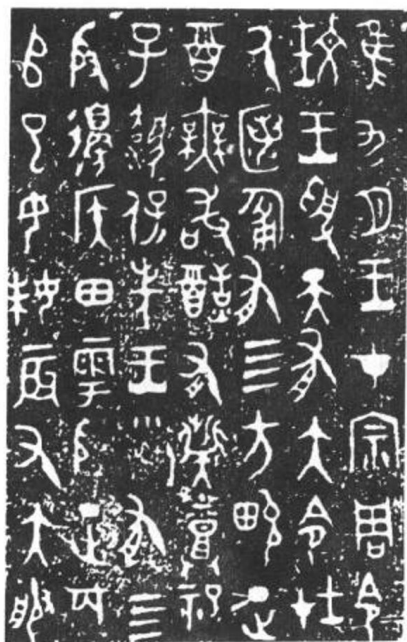 隹九月王才宗周令
玟王受天有大令在
氒匿匍有四方畯正
酉無敢䤔有祡烝祀
子灋保先王有四
殷邊侯田雩殷正百
𠂤巳女妹辰又大服